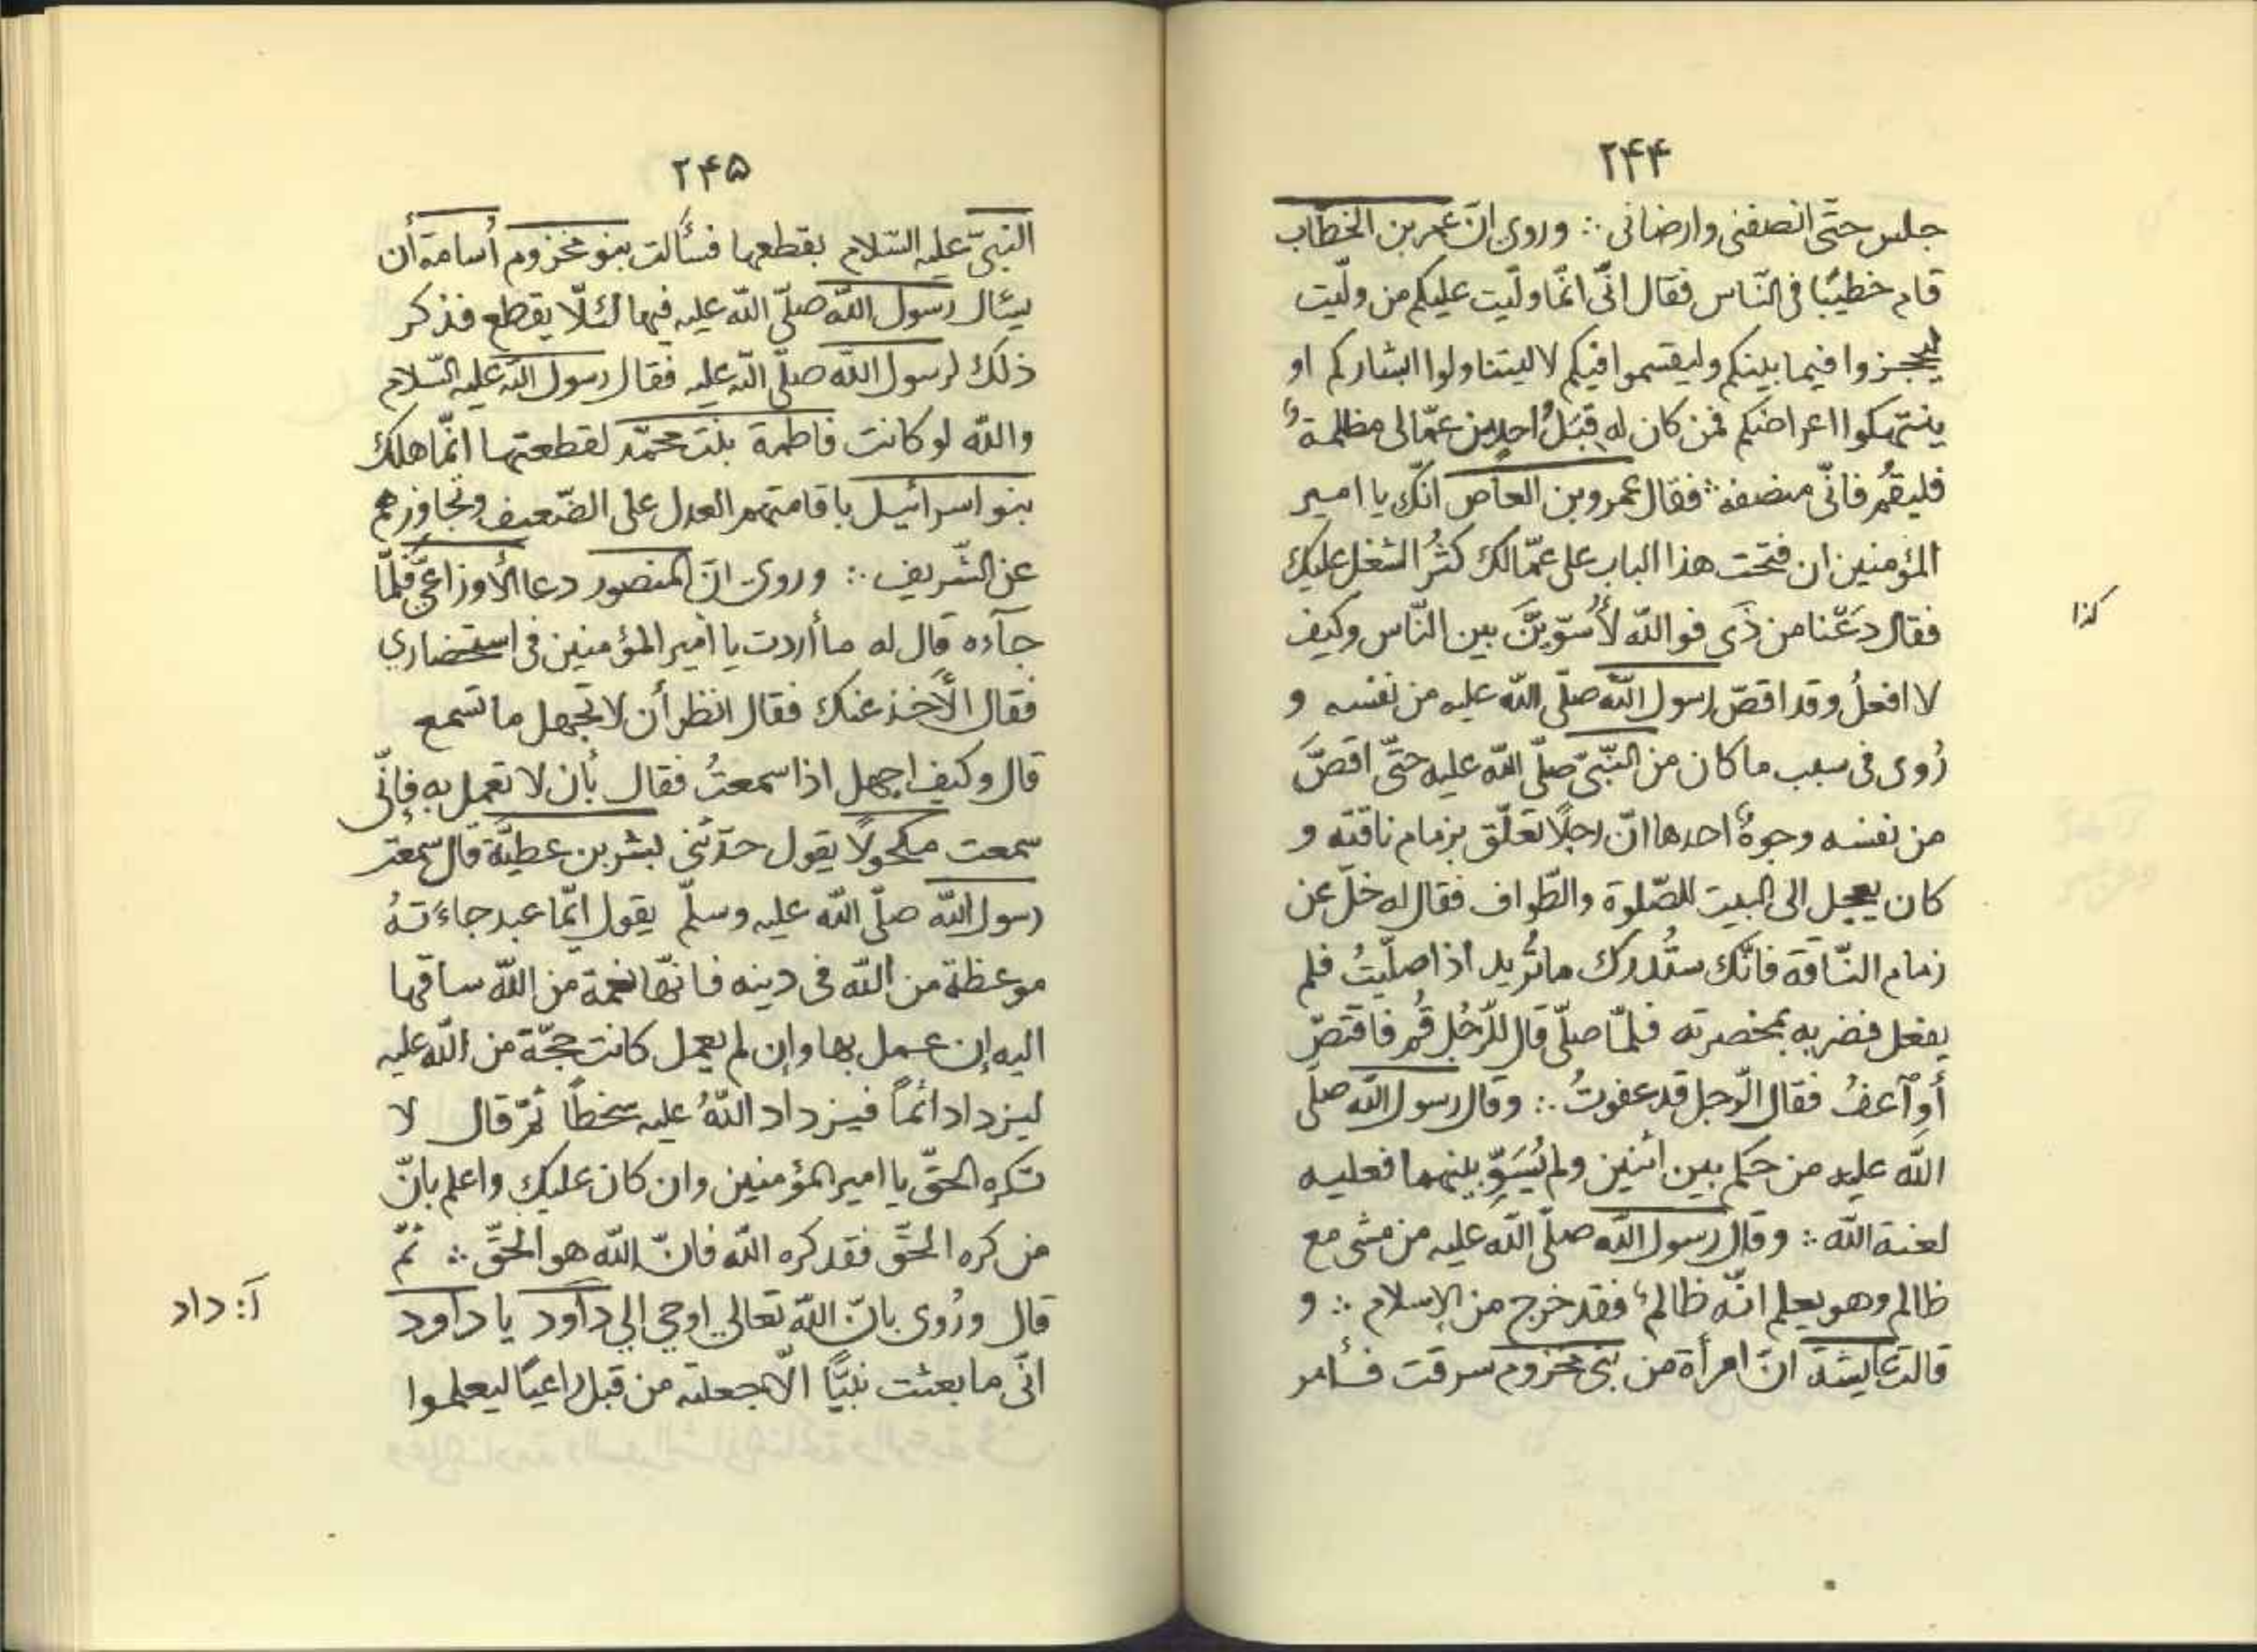 ۲۴۴
جلس حتّى انصفنى وارضانى ∴ وروى انّ عمر بن الخطّاب
قام خطيبًا فى النّاس فقال انّى انّما ولّيت عليكم من ولّيت
ليحجزوا فيما بينكم وليقسموا فيكم لا ليتناولوا ابشاركم او
ينتهكوا اعراضكم فمن كان له قبَلُ احدٍ من عمّالى مظلمةٌ
فليقُم فانّى منصفه ∴ فقال عمرو بن العاص انّك يا امير
المؤمنين ان فتحت هذا الباب على عمّالك كثُر الشغل عليك
فقال دَعْنا من ذَى فوالله لأُسوّيَنَّ بين النّاس وكيف
كذا
لا افعلُ وقد اقصّ رسول اللّه صلّى اللّه عليه من نفسه و
رُوى فى سبب ما كان من النّبىّ صلّى اللّه عليه حتّى اقصَّ
من نفسه وجوهٌ احدها انّ رجلًا تعلّق بزمام ناقته و
كان يعجل الى البيت للصّلوة والطّواف فقال له خلّ عن
زمام النّاقة فانّك ستُدرك ما تُريد اذا صلّيتُ فلم
يفعل فضربه بمخصرته فلمّا صلّى قال للرّجُل قُم فاقتصّ
أو آعفُ فقال الرّجل قد عفوتُ ∴ وقال رسول اللّه صلّى
اللّه عليه من حكم بين اثنين ولم يُسَوِّ بينهما فعليه
لعنة اللّه ∴ وقال رسول اللّه صلّى اللّه عليه من مشى مع
ظالم وهو يعلم انّه ظالمٌ فقد خرج من الإسلام ∴ و
قالت عايشة انّ امرأة من بنى مخزوم سرقت فأمر
۲۴۵
النبىّ عليه السّلام بقطعها فسألت بنو مخزوم أُسامة أن
يسئال رسول اللّه صلّى اللّه عليه فيها لئلّا يقطع فذكر
ذلك لرسول اللّه صلّى اللّه عليه فقال رسول اللّه عليه السّلام
واللّه لو كانت فاطمة بنت محمّد لقطعتها انّما هلك
بنو اسرائيل باقامتهم العدل على الضّعيف وتجاوزهم
عن الشّريف ∴ وروى انّ المنصور دعا الأوزاعىَّ فلمّا
جآءه قال له ما أردت يا أمير المؤمنين فى استحضاري
فقال الأَخذ عنك فقال انظر أن لا تجهل ما تسمع
قال وكيف اجهل اذا سمعتُ فقال بأن لا تعمل به فإنّى
سمعت مكحولًا يقول حدّثنى بشر بن عطيّة قال سمعت
رسول اللّه صلّى اللّه عليه وسلّم يقول ايّما عبد جاءَته
موعظة من اللّه فى دينه فانّها نعمة من اللّه ساقها
اليه إن عمل بها وإن لم يعمل كانت حجّة من اللّه عليه
ليزداد اثمًا فيزداد اللّهُ عليه سخطًا ثمّ قال لا
تكره الحقّ يا امير المؤمنين وان كان عليك واعلم بانّ
من كره الحقّ فقد كره اللّه فانّ اللّه هو الحقّ ∴ ثمّ
قال ورُوى بانّ اللّه تعالى اوحى إلي داَود يا داود
آ: داد
انّى ما بعثت نبيًّا الّا جعلته من قبل راعيًا ليعلموا